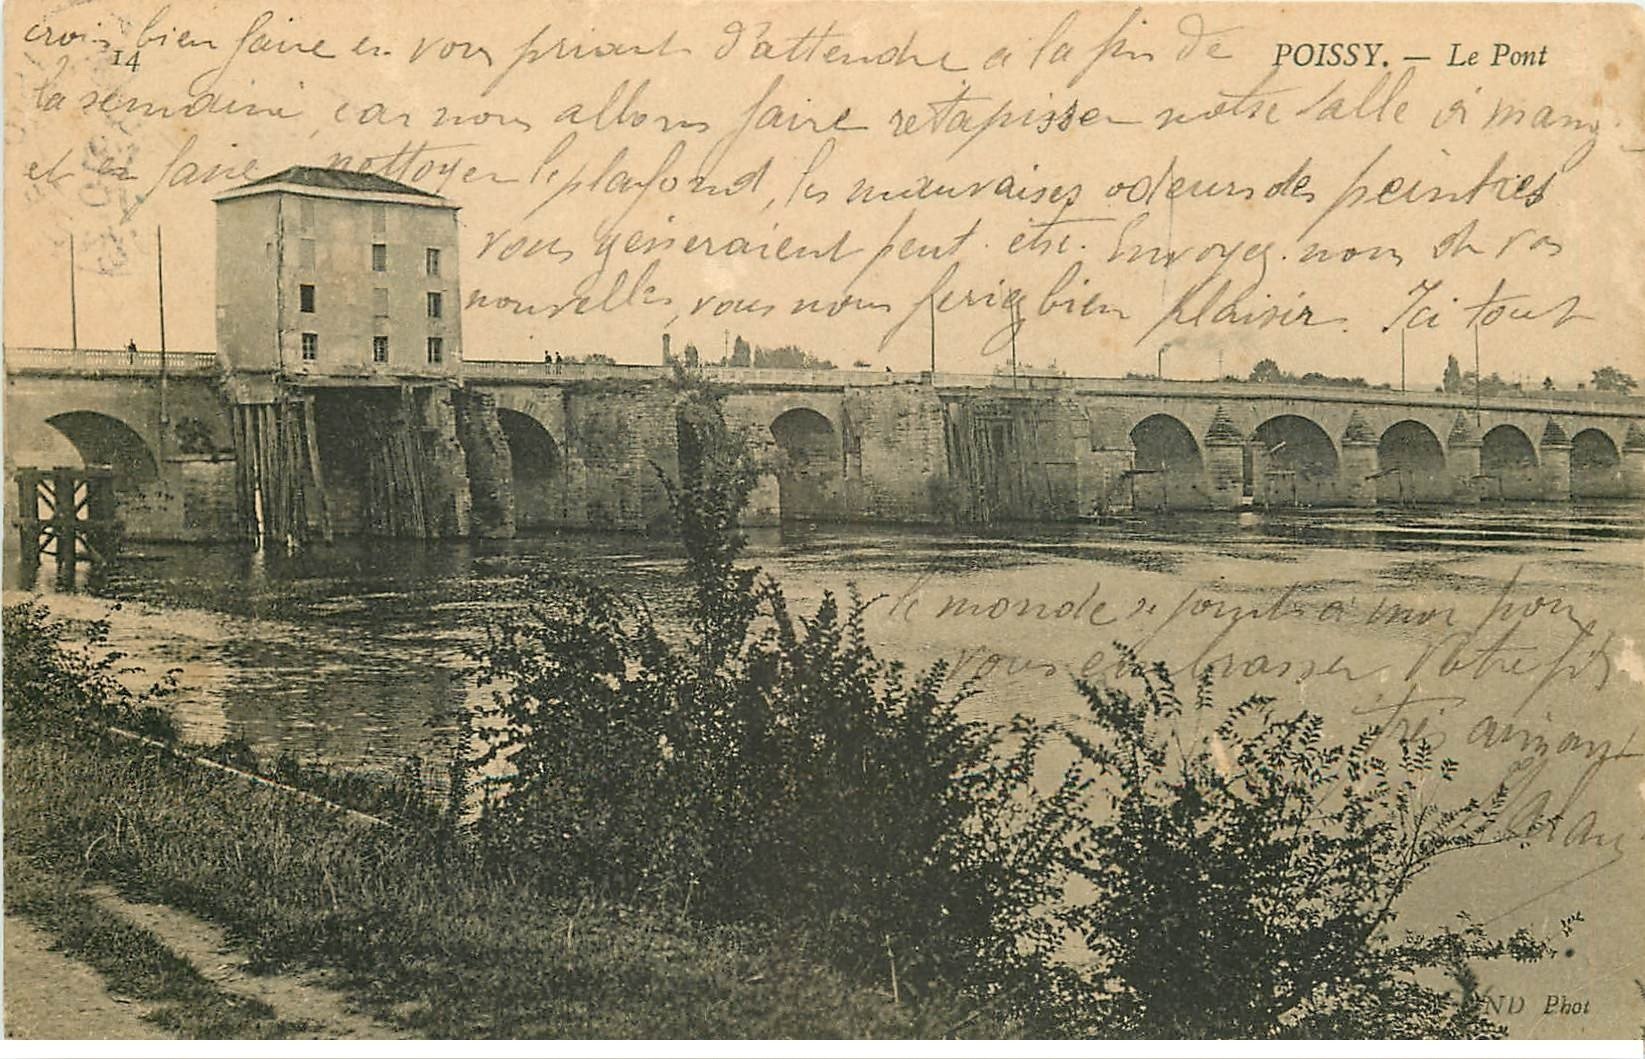 crois bien faire en vous priant d'attendre à la fin de
14
POISSY. — Le Pont
la semaine, car nous allons faire retapisser notre salle à mang.
et en faire nettoyer le plafond, les mauvaises odeurs des peintres
vous gêneraient peut-être. Envoyez-nous de vos
nouvelles, vous nous feriez bien plaisir. Ici tout
le monde se joint à moi pour
vous embrasser. Votre fils
très aimant
ND Phot